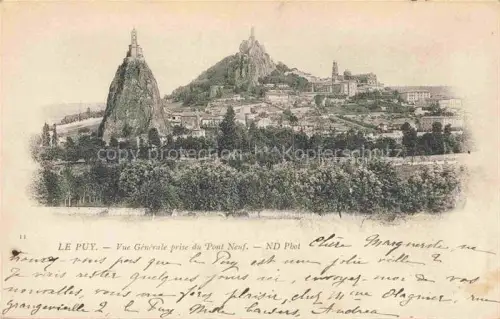 copyright
11
LE PUY. - Vue Générale prise du Pont Neuf. - ND Phot
Chère Marguerite, ne
trouvez vous pas que le Puy est une jolie ville ?
Je vais rester quelques jours ici, envoyez moi de vos
nouvelles, vous me ferez plaisir, chez Mme rue
Grangevieille 2, le Puy, Mille baisers, Andrea